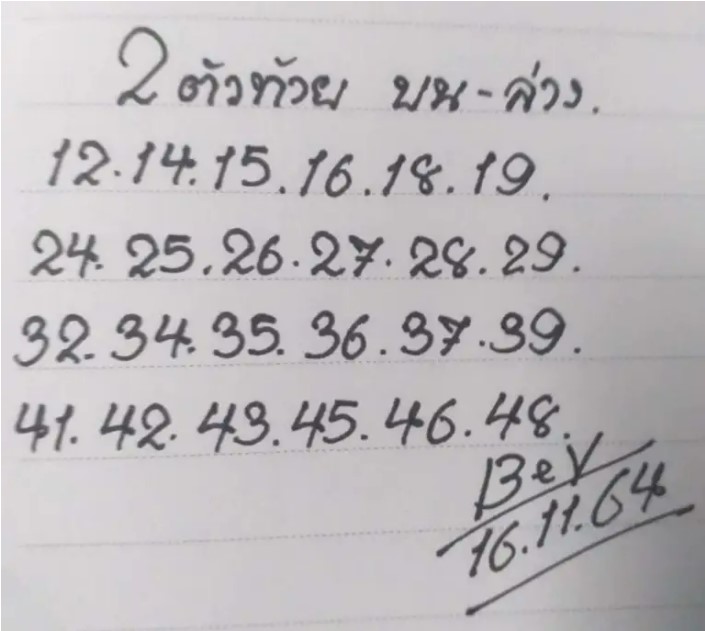 2 ตัวท้าย บน-ล่าง.
12.14.15.16.18.19.
24.25.26.27.28.29.
32.34.35.36.37.39.
41.42.43.45.46.48.
Bev
16.11.64